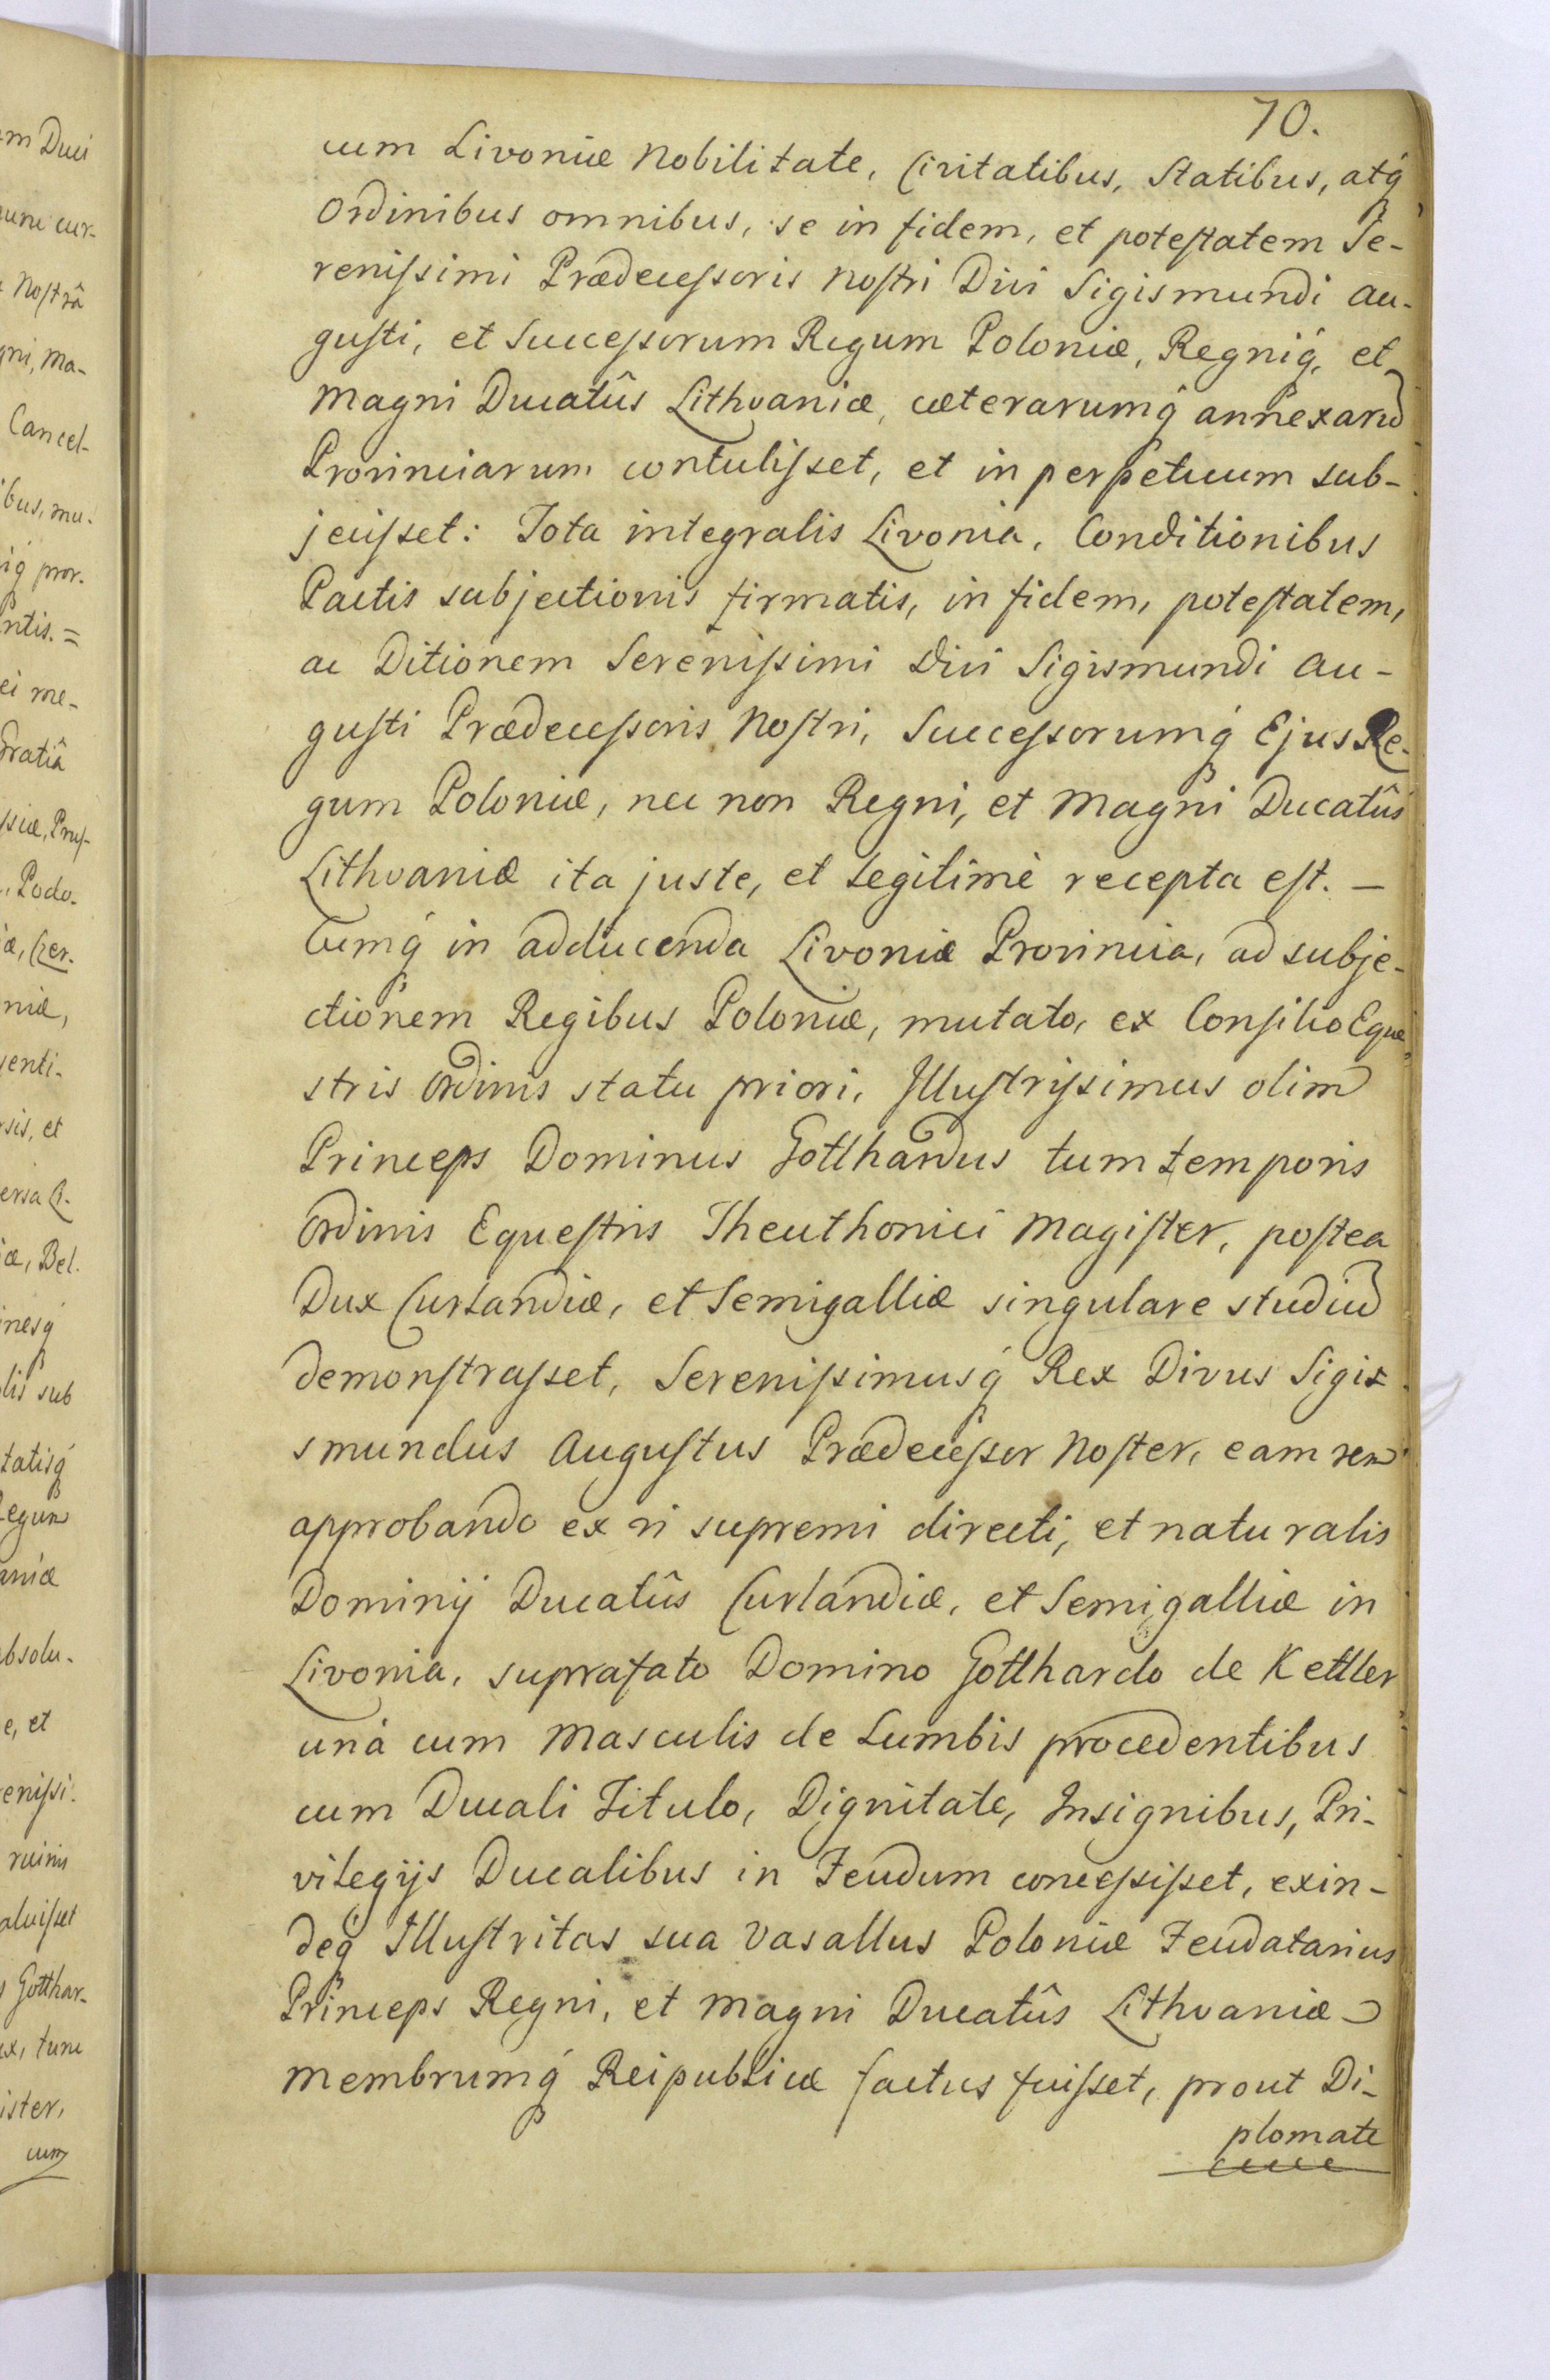 70.
cum Livoniæ Nobilitate, Civitatibus, Statibus, atq́
Ordinibus omnibus, se in fidem, et potestatem Se-
renissimi Prædecessoris Nostri Divi Sigismundi Au-
gusti, et Successorum Regum Poloniæ, Regniq́, et
Magni Ducatûs Lithvaniæ, cæterarumq́ annexarũ
Provinciarum contulisset, et in perpetuum sub-
jecisset: Tota integralis Livonia, Conditionibus
Pactis subjectionis firmatis, in fidem, potestatem,
ac Ditionem Serenissimi Divi Sigismundi Au-
gusti Prædecessoris Nostri, Successorumq́ Ejus Re-
gum Poloniæ, nec non Regni, et Magni Ducatûs
Lithvaniæ ita juste, et legitimè recepta est. —
Cumq́ in adducenda Livoniæ Provincia, ad subje-
ctionem Regibus Poloniæ, mutato, ex Consilio Eque-
stris Ordinis statu priori, Illustrissimus olim
Princeps Dominus Gotthardus tum temporis
Ordinis Equestris Theuthonici Magister, postea
Dux Curlandiæ, et Semigalliæ singulare studiũ
demonstrasset, Serenissimusq́ Rex Divus Sigis
smundus Augustus Prædecessor Noster, eam rem
approbando ex vi supremi directi, et naturalis
Dominij Ducatûs Curlandiæ, et Semigalliæ in
Livonia, suprafato Domino Gotthardo de Kettler
unà cum Masculis de Lumbis procedentibus
cum Ducali Titulo, Dignitate, Insignibus, Pri-
vilegijs Ducalibus in Feudum concessisset, exin-
deq́ Illustritas sua Vasallus Poloniæ Feudatarius
Princeps Regni, et Magni Ducatûs Lithvaniæ
membrumq́ Reipublicæ factus fuisset, prout Di-
plomate